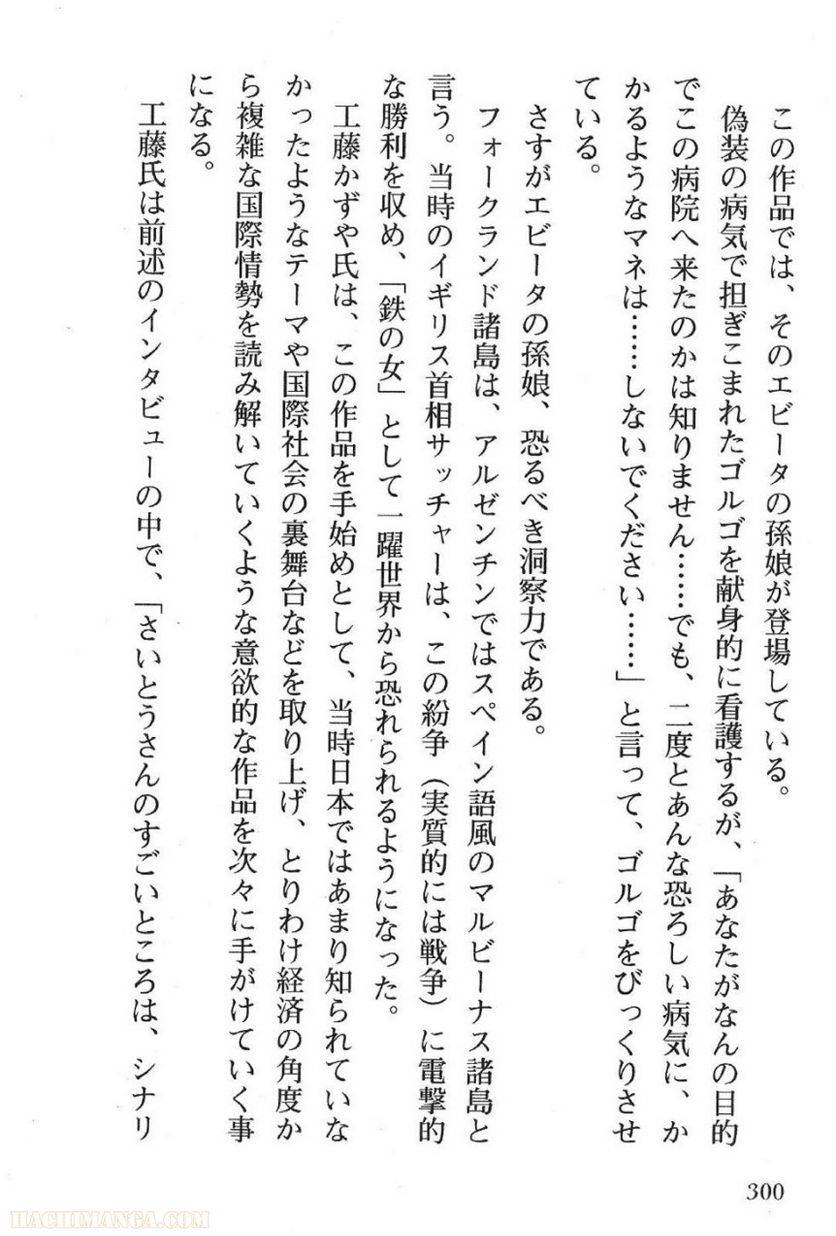 この作品では、そのエビータの孫娘が登場している。
偽装の病気で担ぎこまれたゴルゴを献身的に看護するが、「あなたがなんの目的
でこの病院へ来たのかは知りません……でも、二度とあんな恐ろしい病気に、か
かるようなマネは……しないでください……」と言って、ゴルゴをびっくりさせ
ている。
さすがエビータの孫娘、恐るべき洞察力である。
フォークランド諸島は、アルゼンチンではスペイン語風のマルビーナス諸島と
言う。当時のイギリス首相サッチャーは、この紛争（実質的には戦争）に電撃的
な勝利を収め、「鉄の女」として一躍世界から恐れられるようになった。
工藤かずや氏は、この作品を手始めとして、当時日本ではあまり知られていな
かったようなテーマや国際社会の裏舞台などを取り上げ、とりわけ経済の角度か
ら複雑な国際情勢を読み解いていくような意欲的な作品を次々に手がけていく事
になる。
工藤氏は前述のインタビューの中で、「さいとうさんのすごいところは、シナリ
300
HACHIMANGA.COM